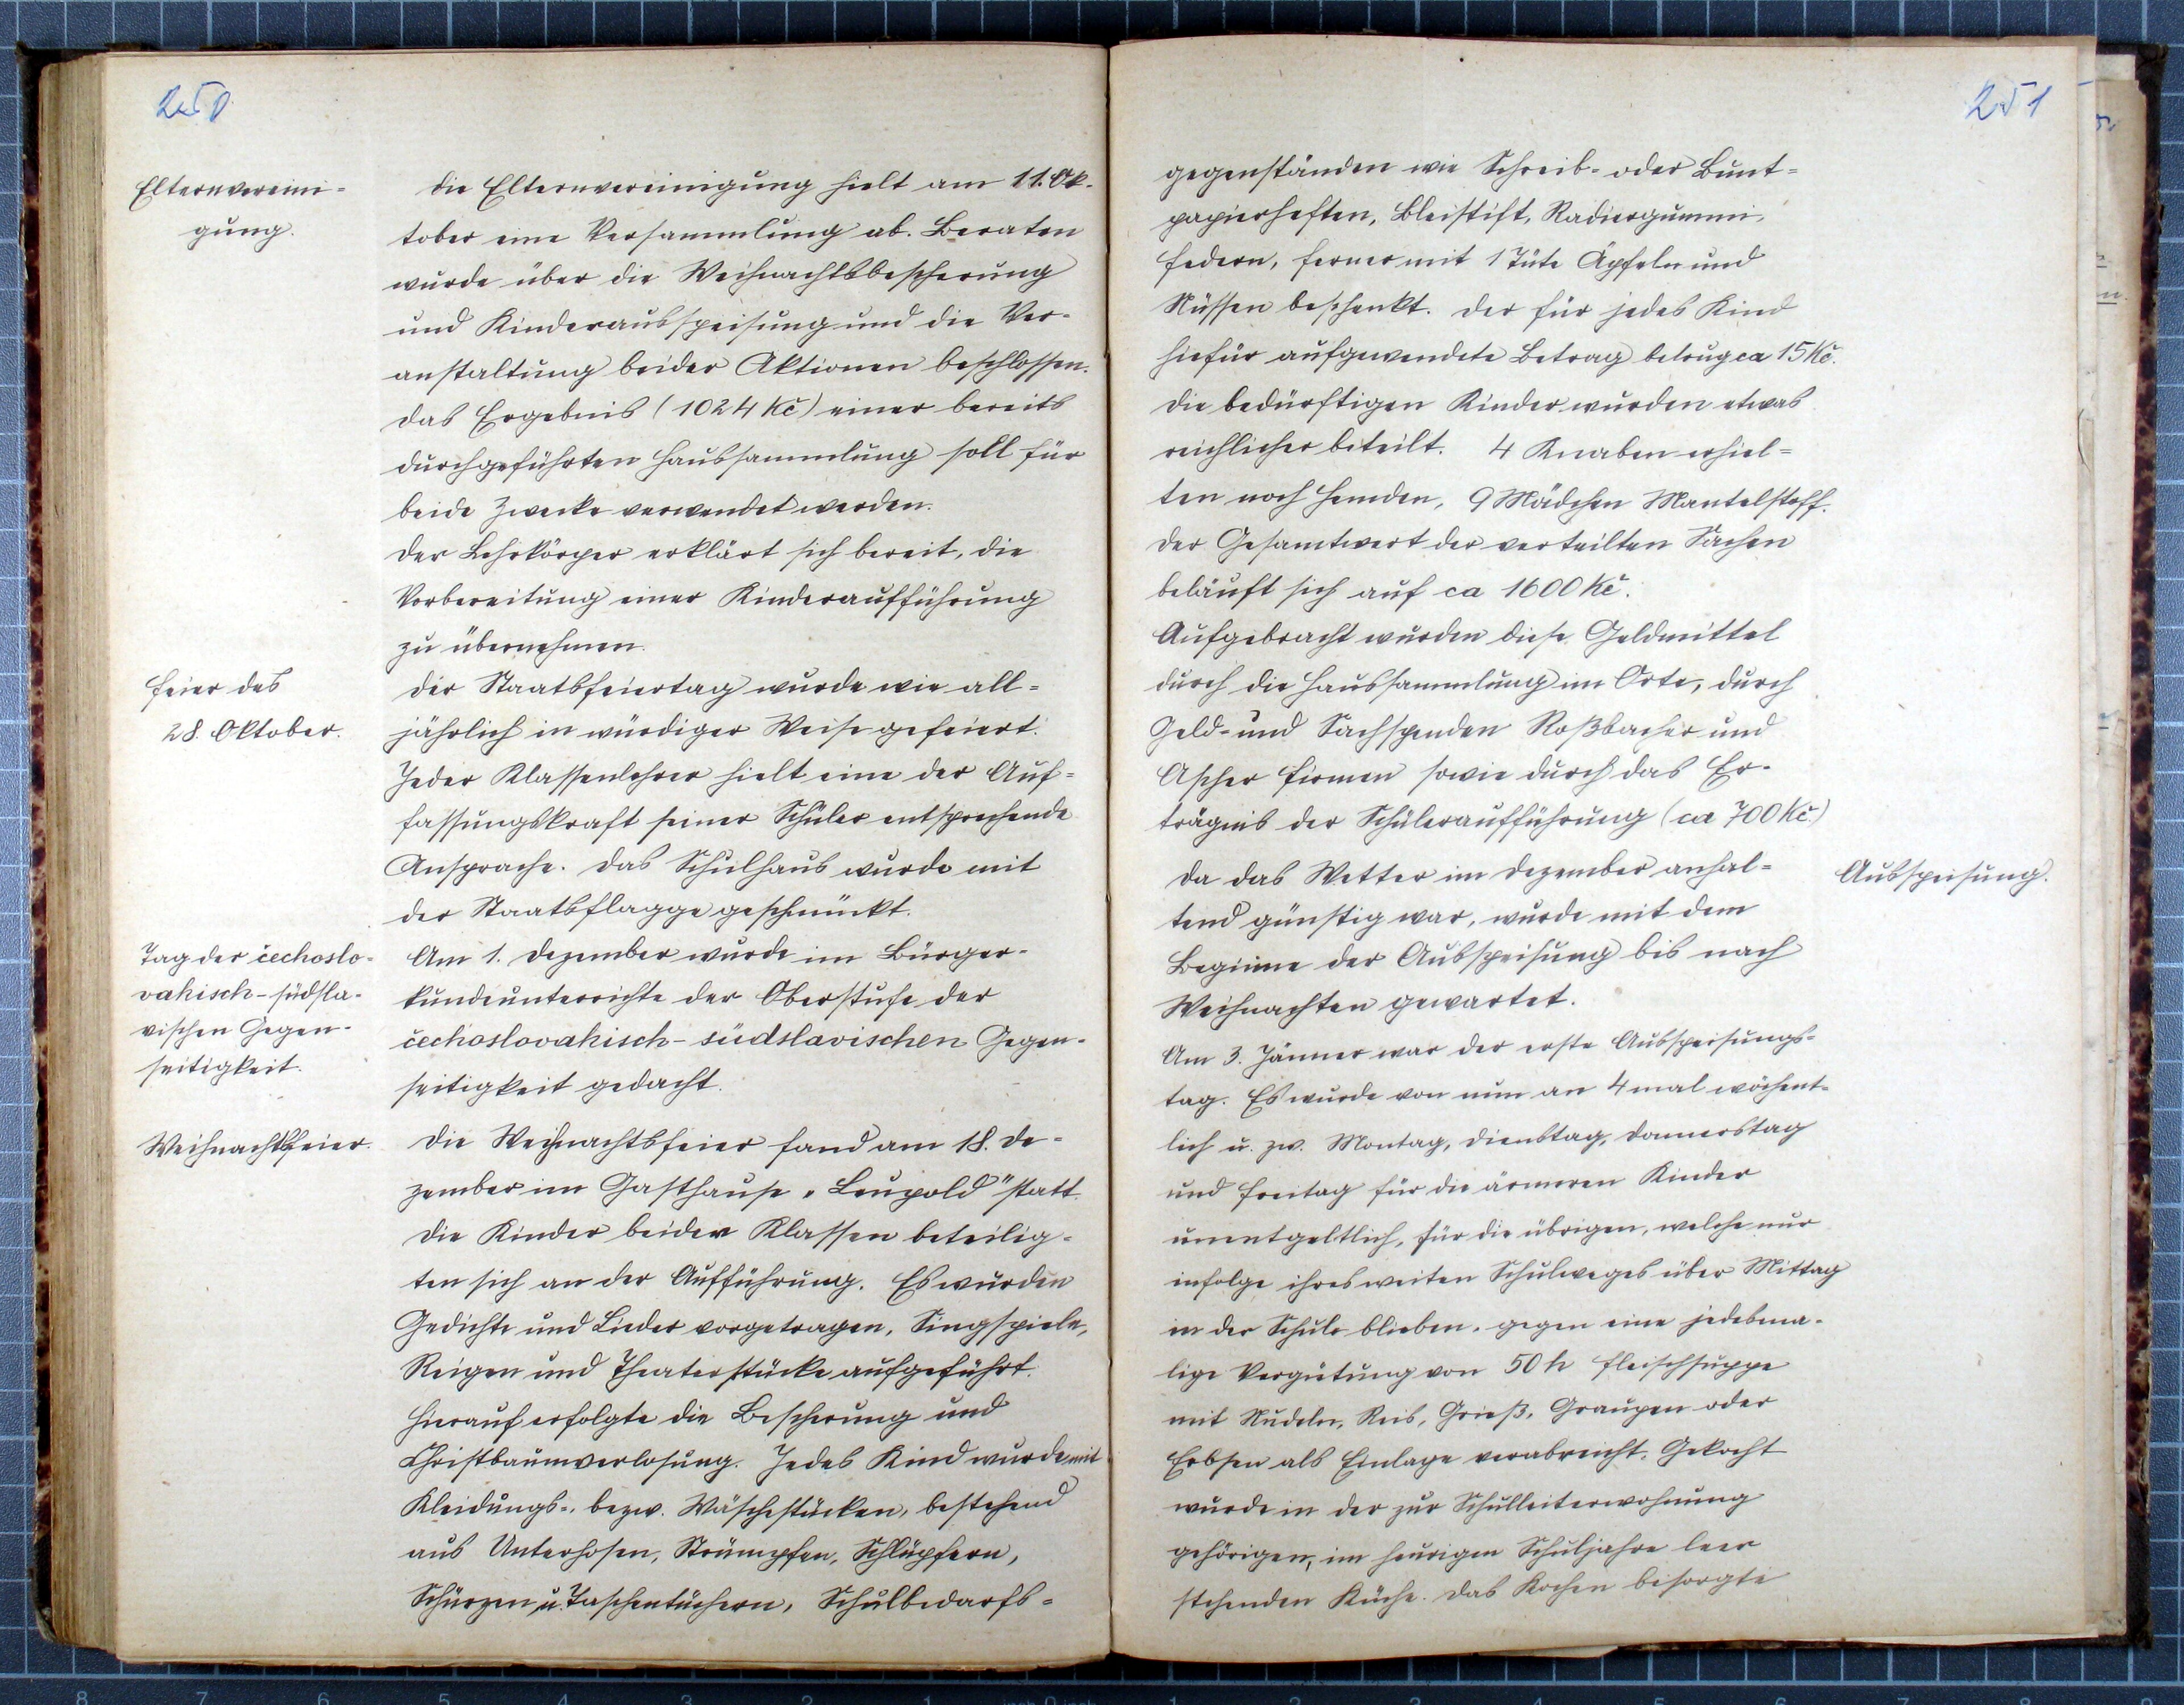 250
Elternvereini-
gung.
Die Elternvereinigung hielt am 11. Ok-
tober eine Versammlung ab. Beraten
wurde über die Weihnachtsbescherung
und Kinderausspeisung und die Ver-
anstaltung beider Aktionen beschlossen.
Das Ergebnis (1024 Kč) einer bereits
durchgeführten Haussammlung soll für
beide Zwecke verwendet werden.
Der Lehrkörper erklärt sich bereit, die
Vorbereitung einer Kinderaufführung
zu übernehmen.
Feier des
28. Oktober.
Der Staatsfeiertag wurde wie all-
jährlich in würdiger Weise gefeiert.
Jeder Klassenlehrer hielt eine der Auf-
fassungskraft seiner Schüler entsprechende
Ansprache. Das Schulhaus wurde mit
der Staatsflagge geschmückt.
Tag der čechoslo-
vakisch-südsla-
vischen Gegen-
seitigkeit.
Am 1. Dezember wurde im Bürger-
kundeunterrichte der Oberstufe der
čechoslovakisch-südslavischen Gegen-
seitigkeit gedacht.
Weihnachtsfeier.
Die Weihnachtsfeier fand am 18. De-
zember im Gasthause „Leupold" statt.
Die Kinder beider Klassen beteilig-
ten sich an der Aufführung. Es wurden
Gedichte und Lieder vorgetragen, Singspiele,
Reigen und Theaterstücke aufgeführt.
Hierauf erfolgte die Bescherung und
Christbaumverlosung. Jedes Kind wurde mit
Kleidungs-, bezw. Wäschestücken, bestehend
aus Unterhosen, Strümpfen, Schlüpfern,
Schürzen u. Taschentüchern, Schulbedarfs-
251
gegenständen wie Schreib- oder Bunt-
papierheften, Bleistift, Radiergummi,
Federn, ferner mit 1 Tüte Äpfeln und
Nüssen beschenkt. Der für jedes Kind
hiefür aufgewendete Betrag betrug ca 15 Kč.
Die bedürftigen Kinder wurden etwas
reichlicher beteilt. 4 Knaben erhiel-
ten noch Hemden, 9 Mädchen Mantelstoff.
Der Gesamtwert der verteilten Sachen
beläuft sich auf ca 1600 Kč.
Aufgebracht wurden diese Geldmittel
durch die Haussammlung im Orte, durch
Geld- und Sachspenden Roßbacher und
Ascher Firmen sowie durch das Er-
trägnis der Schüleraufführung (ca 700 Kč.)
Ausspeisung.
Da das Wetter im Dezember anhal-
tend günstig war, wurde mit dem
Beginne der Ausspeisung bis nach
Weihnachten gewartet.
Am 3. Jänner war der erste Ausspeisungs-
tag. Es wurde von nun an 4 mal wöchent-
lich u. zw. Montag, Dienstag, Donnerstag
und Freitag für die ärmeren Kinder
unentgeltlich, für die übrigen, welche nur
infolge ihres weiten Schulweges über Mittag
in der Schule blieben, gegen eine jedesma-
lige Vergütung von 50 h Fleischsuppe
mit Nudeln, Reis, Grieß, Graupen oder
Erbsen als Einlage verabreicht. Gekocht
wurde in der zur Schulleiterwohnung
gehörigen, im heurigen Schuljahre leer
stehenden Küche. Das Kochen besorgte
8 7 6 5 4 3 2 1 inch 0 inch 1 2 3 4 5 6 7 8 9